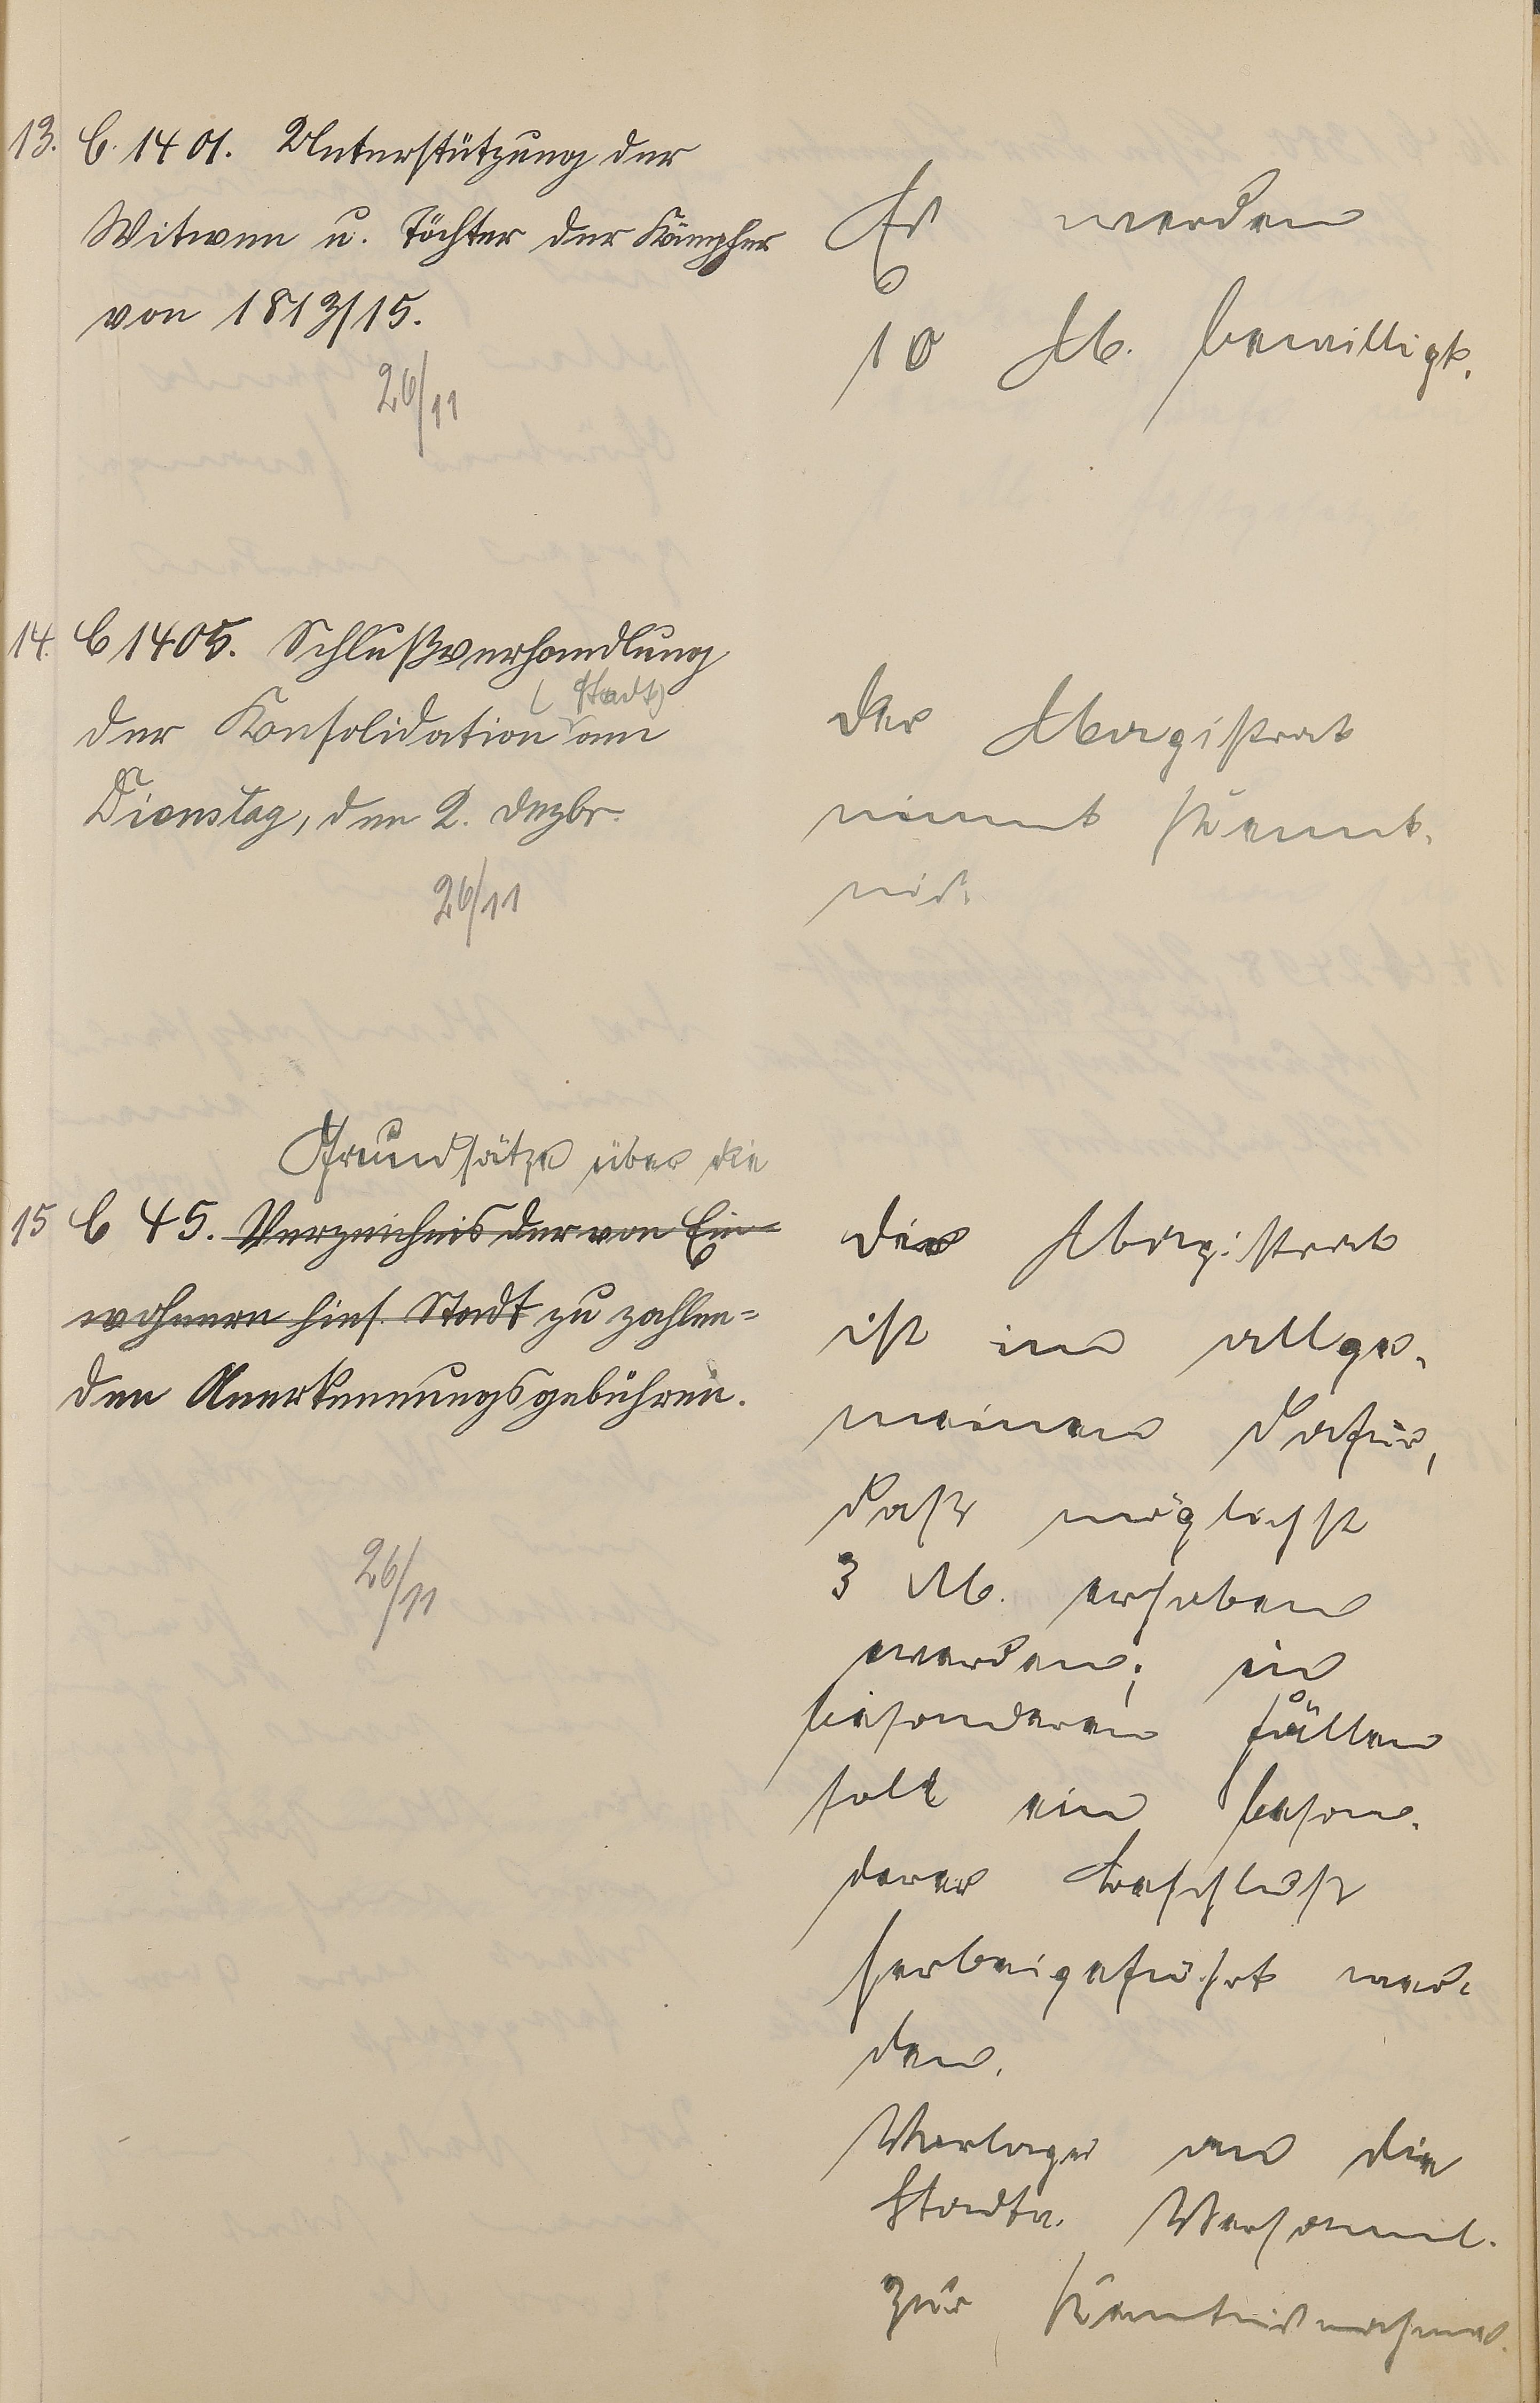 13. C. 1401. Unterstützung der
Witwen u. Töchter der Kämpfer
von 1813/15.
26/11
Es werden
10 M. bewilligt.
14. C 1405. Schlußverhandlung
der Konsolidation (Stadt) am
Dienstag, den 2. Dezbr.
26/11
Der Magistrat
nimmt Kennt-
nis.
Grundsätze über die
15 C 45. Verzeichnis der von Ein-
wohnern hies. Stadt zu zahlen=
den Anerkennungsgebühren.
26/11
Der Magistrat
ist im allge-
meinen dafür,
daß möglichst
3 M. erhoben
werden; in
besonderen Fällen
soll ein beson-
derer Beschluß
herbeigeführt wer-
den.
Vorlage an die
Stadtv. Versamml.
zur Kenntnisnahme.